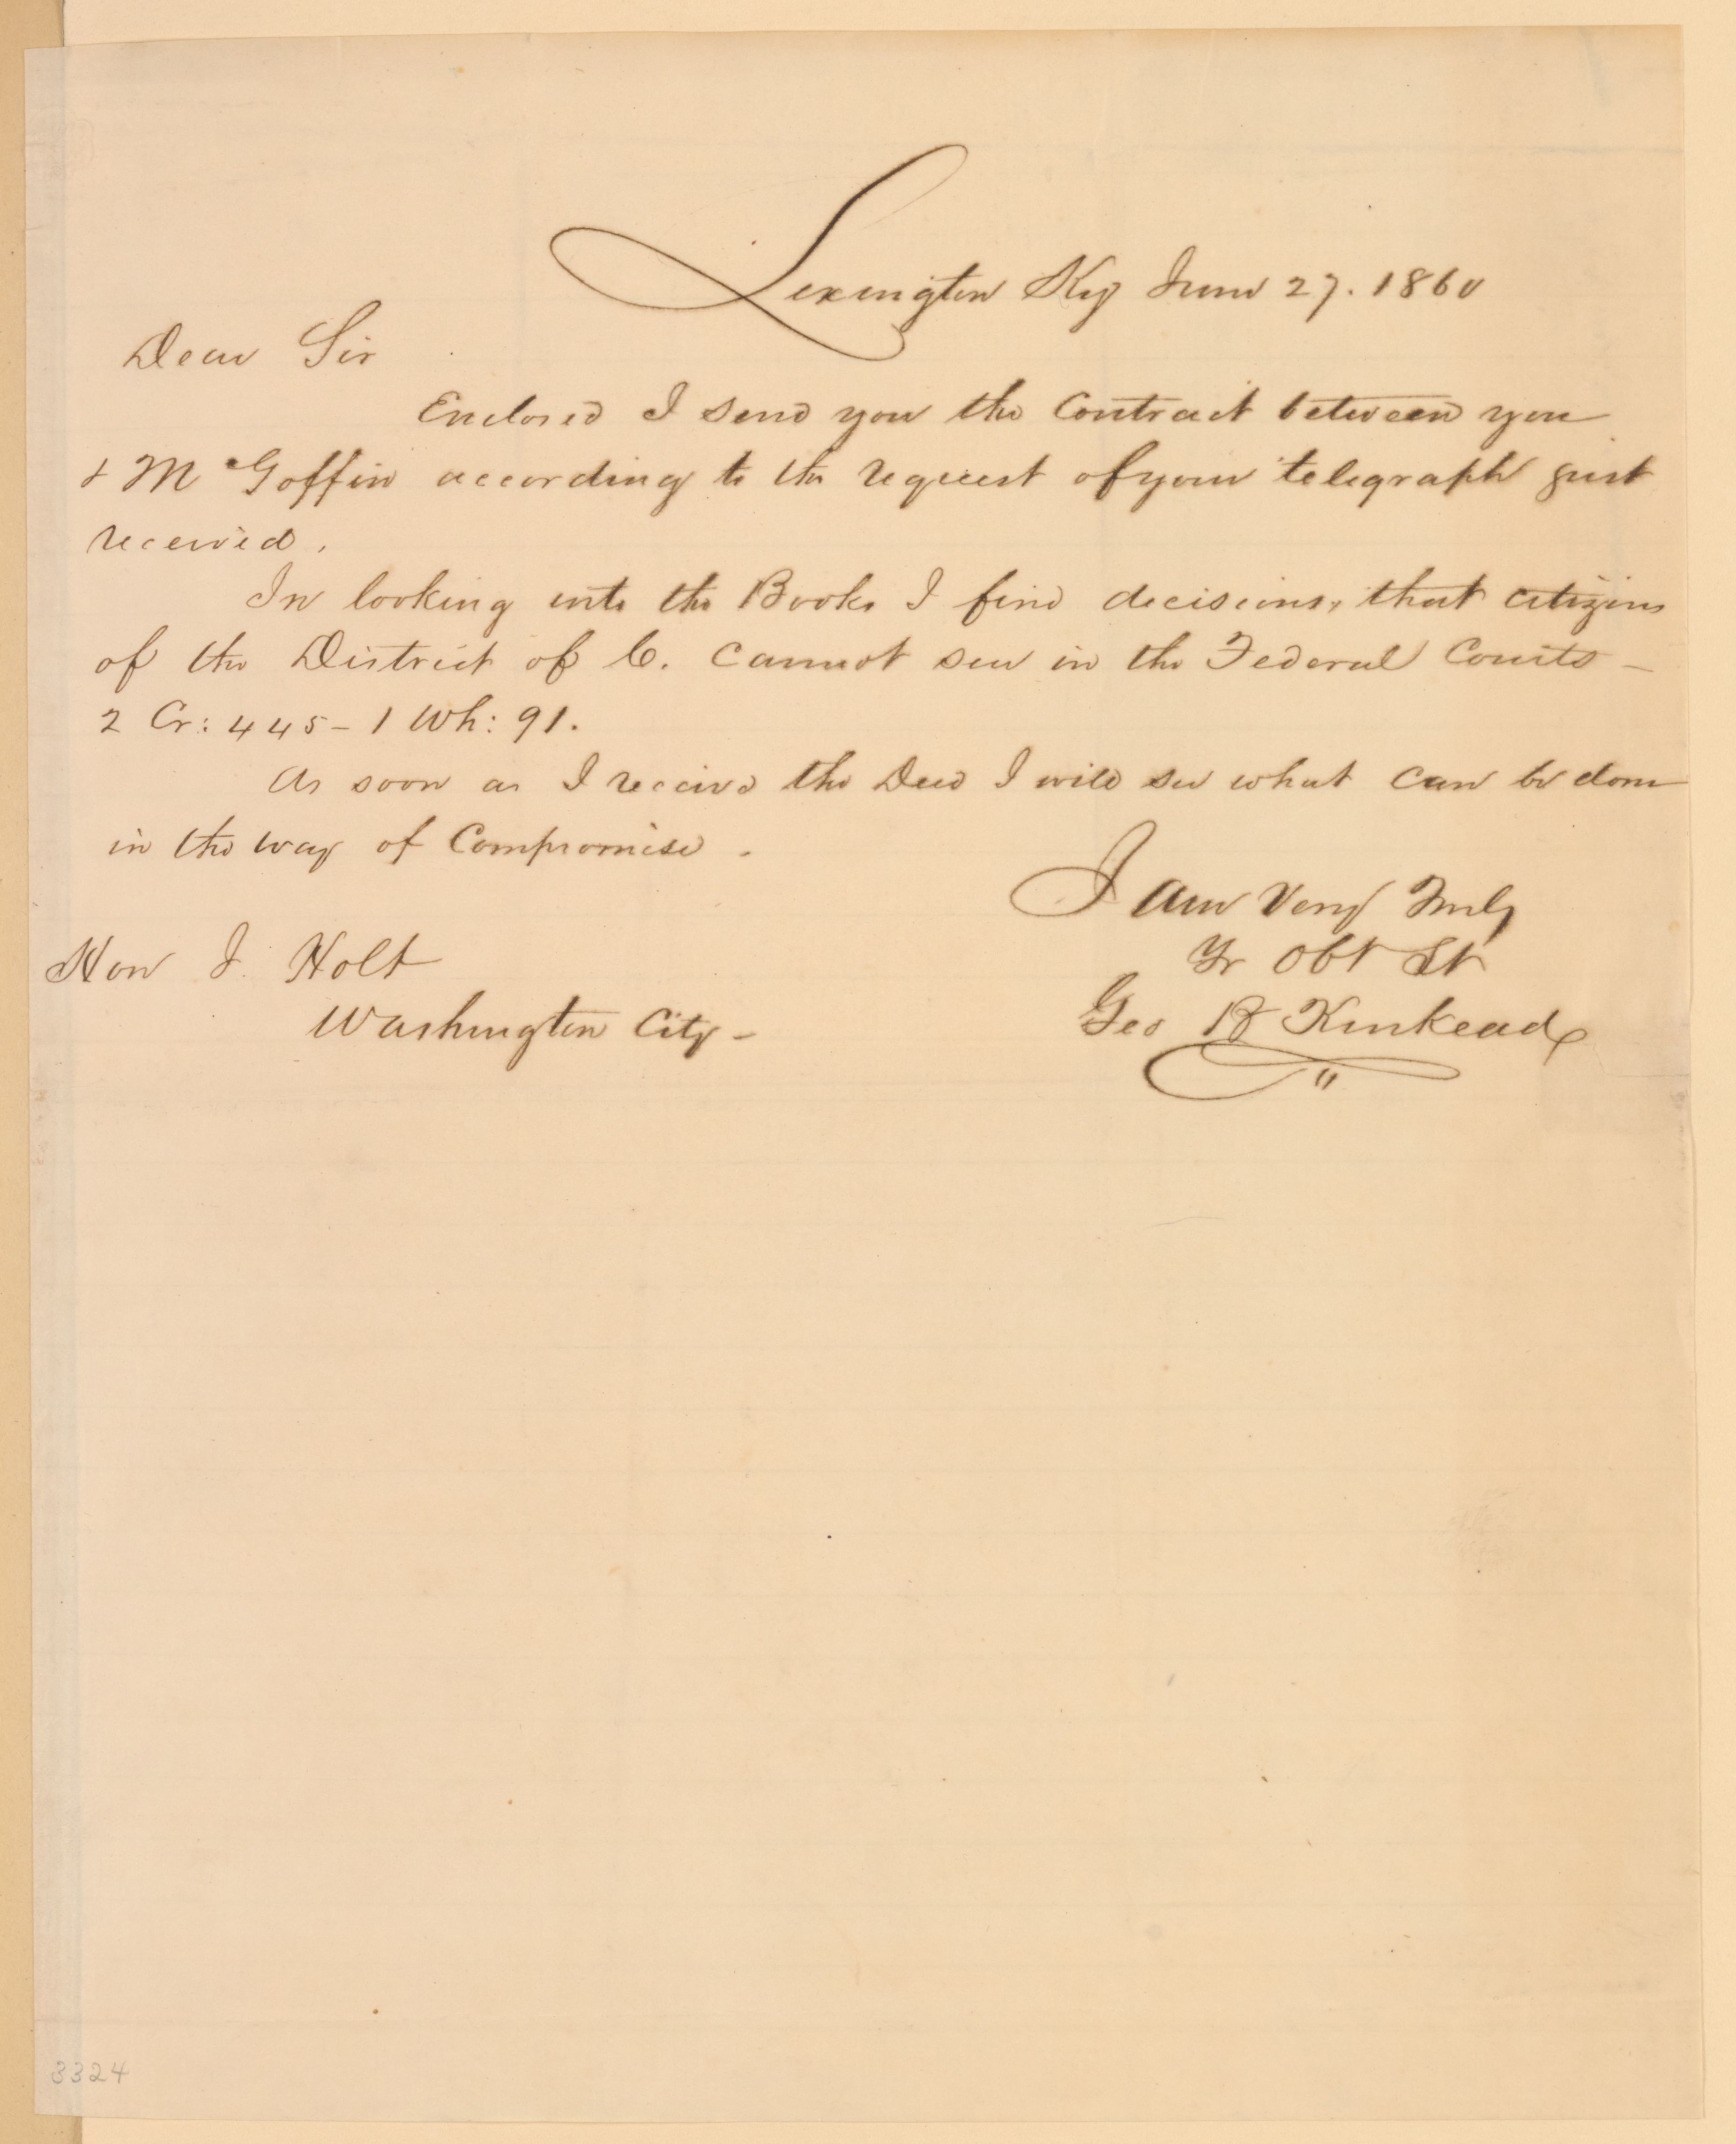 Lexington Ky June 27. 1860
Dear Sir
Enclosed I send you the Contract between you
& McGoffin according to the request of your telegraph just
received.
In looking into the Books I find decisions, that citizens
of the District of C. cannot sue in the Federal Courts —
2 Cr: 445 - 1 Wh: 91.
As soon as I receive the Deed I will see what can be done
in the way of Compromise.
I am Very Truly
Yr Obt St
Geo B Kinkead
Hon J. Holt
Washington City -
3324